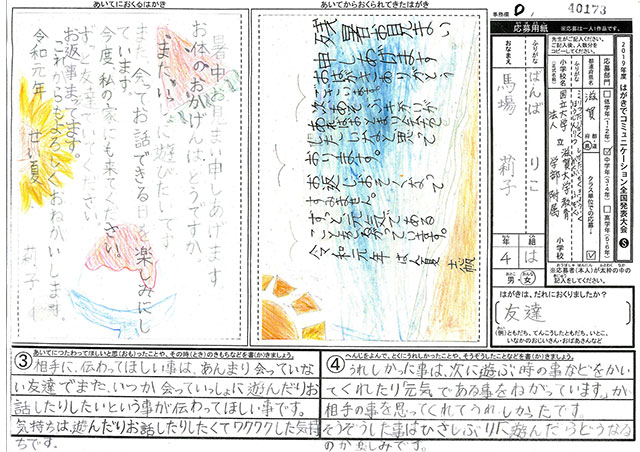 あいてにおくるはがき
暑中お見まい申しあげます
お体のおかげんは、どうですか。
また、いっしょに遊びたいと思っています。
また会ってお話できるのを楽しみにしています。
今度、私の家にも来てください。
お返事まってます。
これからもよろしくおねがいします。
令和元年 せい夏
莉子
あいてからおくられてきたはがき
残暑お見まい
申しあげます
お手紙ありがとう
ございます。
おります。
お返しおそくなって
すみません。
ずっと元気である
ことをねがっています。
令和元年 ばん夏
事務欄
D
40173
応募用紙
※応募は一人1作品です。
2019年度 はがきでコミュニケーション全国発表大会 S
先生がご記入ください。
ご記入後、人数分を
コピーしてください。
応募部門
低学年(1・2年)
中学年(3・4年)
高学年(5・6年)
都道府県名
滋賀
小学校名
国立大学法人 滋賀大学教育学部附属
小学校
クラス単位での応募
ふりがな
ばんば りこ
おなまえ
馬場 莉子
4 年
は 組
男・女
※応募者(本人)が太枠の中の
記入をしてください。
はがきは、だれにおくりましたか?
友達
(例)ともだち、てんこうしたともだち、いとこ、
いなかのおじいさん・おばあさんなど
③ あいてにつたわってほしいと思(おも)ったことや、その時(とき)のきもちなどを書(か)きましょう。
相手に、伝わってほしい事は、あんまり会っていな
い友達でまた、いつか会っていっしょに遊んだりお
話したりしたいという事が伝わってほしい事です。
気持ちは、遊んだりお話したりしたくてワクワクした気持
ちです。
④ へんじをよんで、とくにうれしかったことや、そうぞうしたことなどを書(か)きましょう。
うれしかった事は、次に遊ぶ時の事などをかい
てくれたり「元気である事をねがっています。」が
相手の事を思ってくれてうれしかったです。
そうぞうした事はひさしぶりに遊んだらどうなる
のか楽しみです。